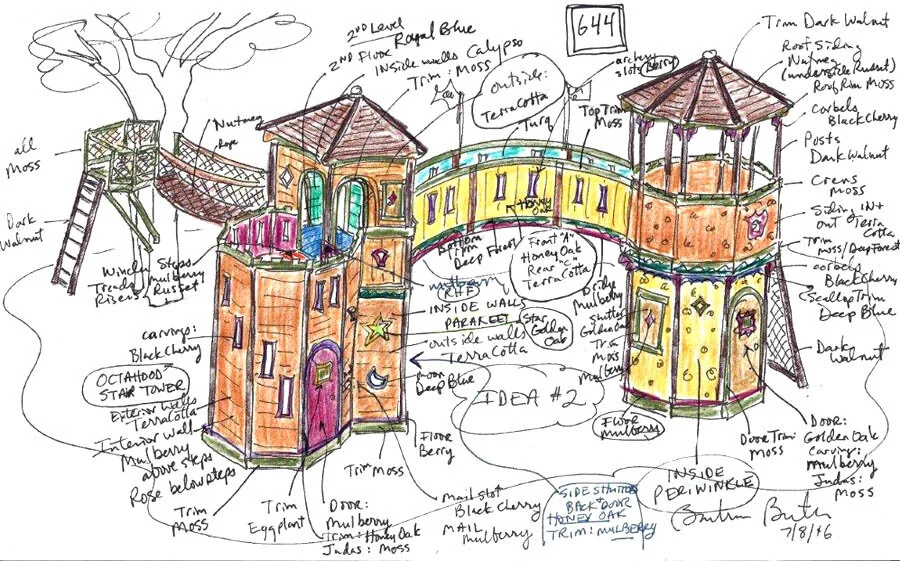 644
2ND Level
2ND Floor Royal Blue
Inside walls Calypso
Trim: Moss
Outside:
Terracotta
archery
slots (Berry)
Turq
Top Trim
Moss
Trim Dark Walnut
Roof Siding
Nutmeg
(underside Russet)
Roof Rim Moss
Corbels
Black Cherry
Posts
Dark Walnut
Crens
Moss
Siding IN+
out Terra
Cotta
Trim
Moss/Deep Forest
Corbels
Black Cherry
Scallop Trim
Deep Blue
Dark
Walnut
all
Moss
Dark
Walnut
Nutmeg
Rope
Steps
Mulberry
Treads
Risers Russet
Honey
Oak
Bottom
Trim
Deep Forest
Front "A"
Honey Oak
Rear "C"
Terracotta
(RHF)
INSIDE WALLS
PARAKEET
Star
Golden
Oak
outside walls
Terracotta
moon
Deep Blue
Bridge
Mulberry
Shutter
Golden Oak
Trim
Moss
Mulberry
carvings:
Black Cherry
OCTAHOOD
STAIR TOWER
Exterior Walls
Terracotta
Interior Walls
Mulberry
above steps
Rose below steps
Trim
Moss
Trim
Eggplant
Door:
Mulberry
Trim: Honey Oak
Judas: Moss
Trim Moss
Floor
Berry
Mail slot
Black Cherry
MAIL
Mulberry
IDEA #2
SIDE SHUTTERS
+ BACK DOOR
HONEY OAK
TRIM: MULBERRY
Floor
Mulberry
INSIDE
PERIWINKLE
Door Trim
Moss
Door:
Golden Oak
Carving:
Mulberry
Judas:
Moss
7/8/16